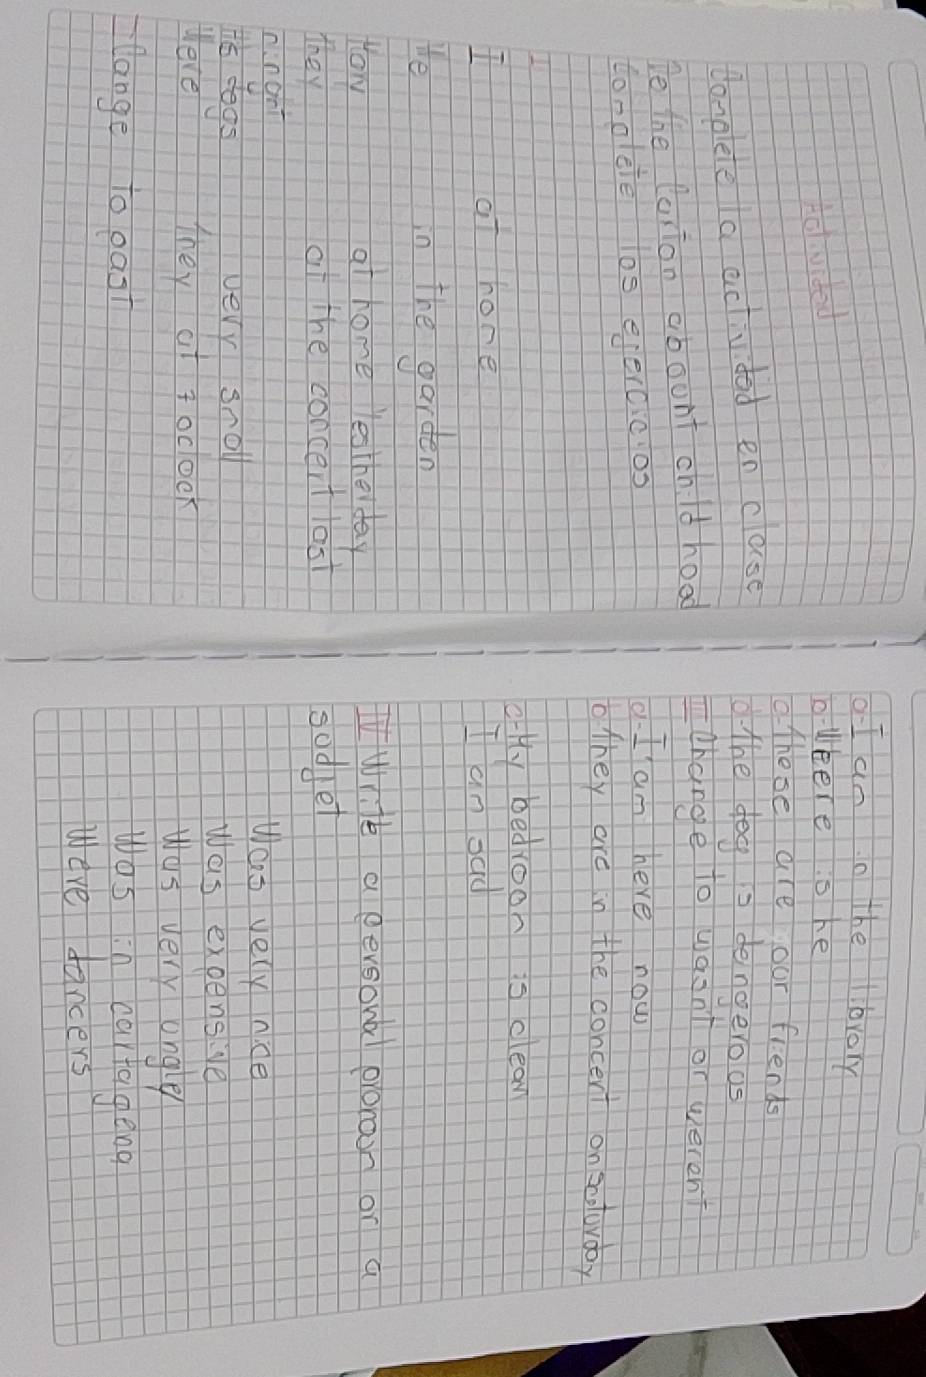 Actividad
Complete la actividad en clase
complete los ejercicios
I at home
He in the garden
at home Yestherday
they at the concert last
nignt
very small
Were they at 7 oclock
to past
a-I am in the library
b-Weere is he
c-these are our friends
d-the dog is dengeroos
III Change to wasnt or werent
a-I am here now
b-they are in the concert on
c-My bedroon is clear
I am sad
IV Write a personal or a
sodjet
Was very nice
Was expensive
Was very ungly
Was in cartagena
Were dancers